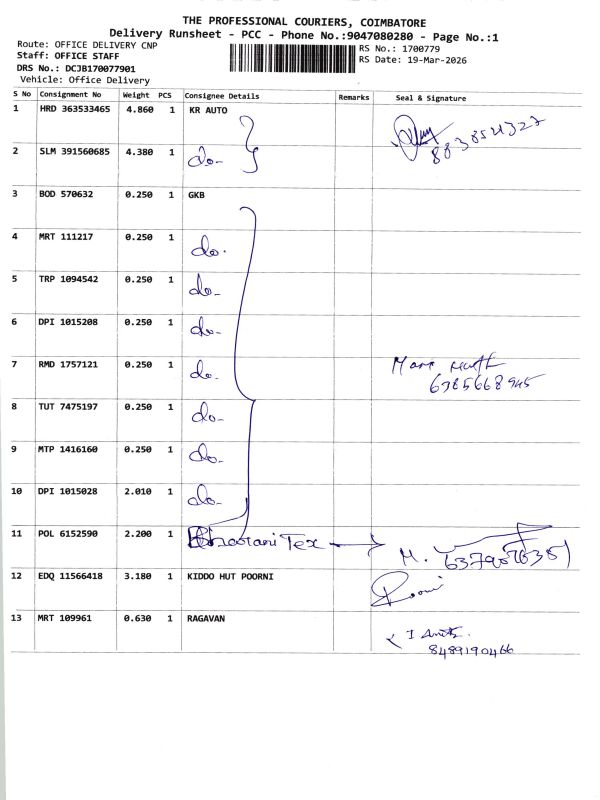 THE PROFESSIONAL COURIERS, COIMBATORE
Delivery Runsheet - PCC - Phone No.:9047080280 - Page No.:1
Route: OFFICE DELIVERY CNP
Staff: OFFICE STAFF
DRS No.: DCJB170077901
Vehicle: Office Delivery
RS No.: 1700779
RS Date: 19-Mar-2026
S No Consignment No Weight PCS Consignee Details Remarks Seal & Signature
1 HRD 363533465 4.860 1 KR AUTO
2 SLM 391560685 4.380 1 do-
3 BOD 570632 0.250 1 GKB
4 MRT 111217 0.250 1 do-
5 TRP 1094542 0.250 1 do-
6 DPI 1015208 0.250 1 do-
7 RMD 1757121 0.250 1 do-
6385668945
8 TUT 7475197 0.250 1 do-
9 MTP 1416160 0.250 1 do-
10 DPI 1015028 2.010 1 do-
11 POL 6152590 2.200 1 Bhavani Tex M.
12 EDQ 11566418 3.180 1 KIDDO HUT POORNI
13 MRT 109961 0.630 1 RAGAVAN
8489190466